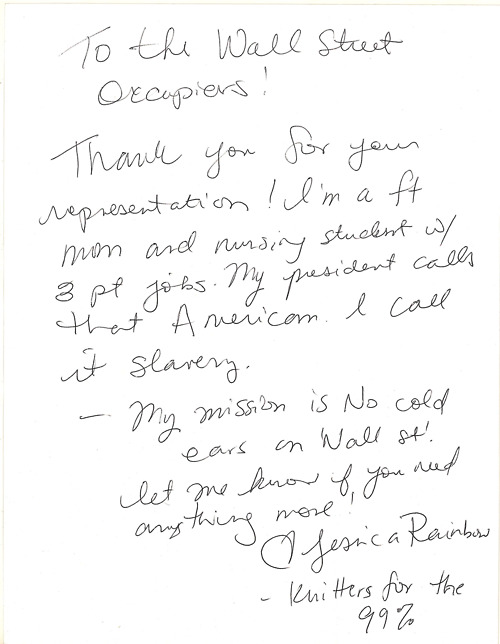 To the Wall Street
Occupiers!
Thank you for your
representation! I'm a ft
mom and nursing student w/
3 pt jobs. My president calls
that American. I call
it slavery.
– My mission is No cold
ears on Wall st!
let me know if you need
anything more!
Jessica Rainbow
- Knitters for the
99%